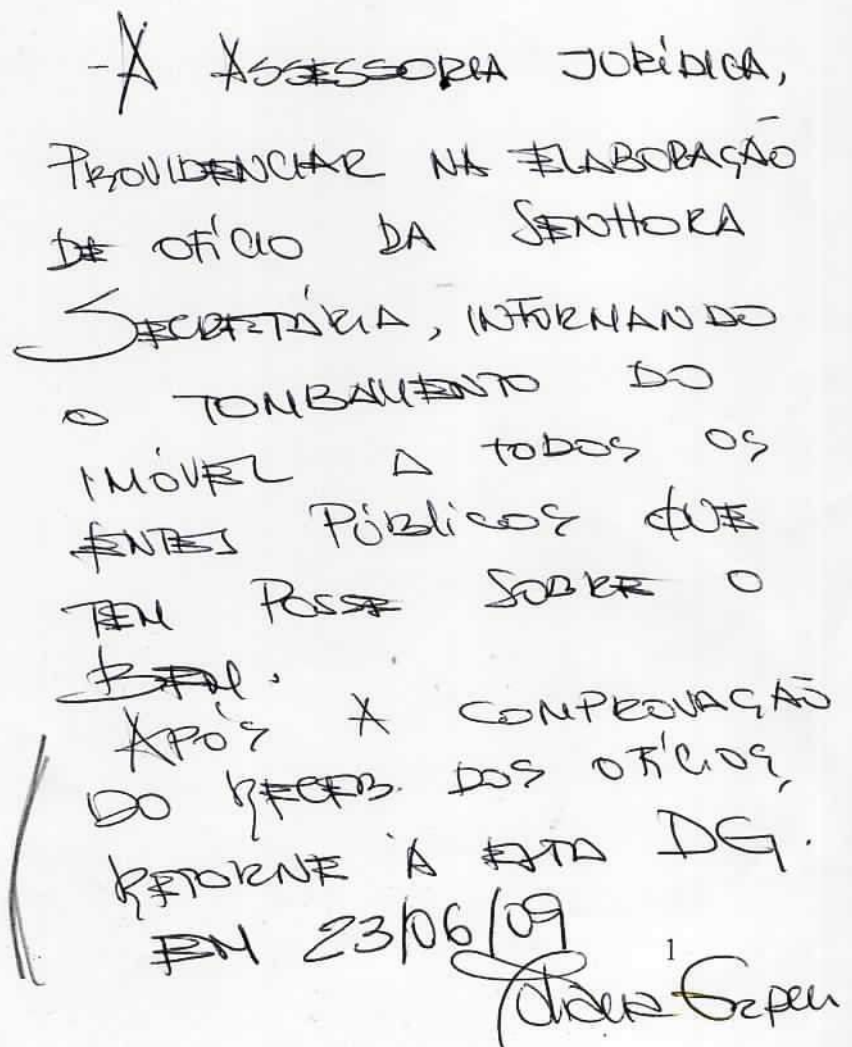 -A ASSESSORIA JURÍDICA,
PROVIDENCIAR NA ELABORAÇÃO
DE OFÍCIO DA SENHORA
SECRETÁRIA, INFORMANDO
O TOMBAMENTO DO
IMÓVEL A TODOS OS
ENTES PÚBLICOS QUE
TEM POSSE SOBRE O
BEM.
APÓS A COMPROVAÇÃO
DO RECEB. DOS OFÍCIOS,
RETORNE À ESTA DG.
EM 23/06/09
1